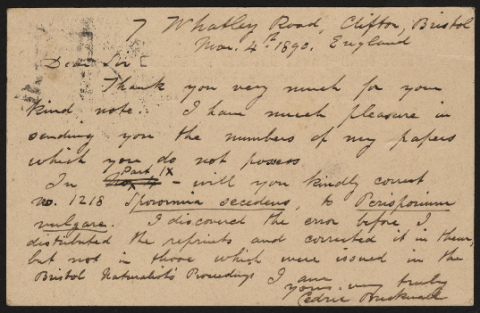 7 Whatley Road, Clifton, Bristol
Mar. 4th 1890. England
Dear Sir
Thank you very much for your
kind note. I have much pleasure in
sending you the numbers of my papers
which you do not possess
Part IX
In - will you kindly correct
no. 1218 Sporormia secedens, to Perisporium
vulgare. I discovered the error before I
distributed the reprints and corrected it in them,
but not in those which were issued in the
Bristol Naturalists Proceedings I am
yours very truly
Cedric Bucknall